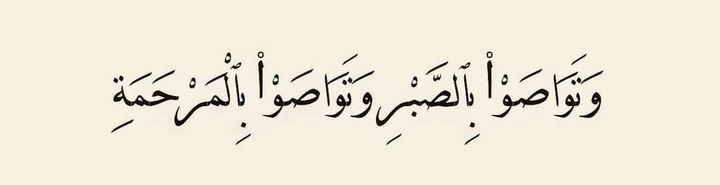 وَتَوَاصَوْا۟ بِٱلصَّبْرِ وَتَوَاصَوْا۟ بِٱلْمَرْحَمَةِ